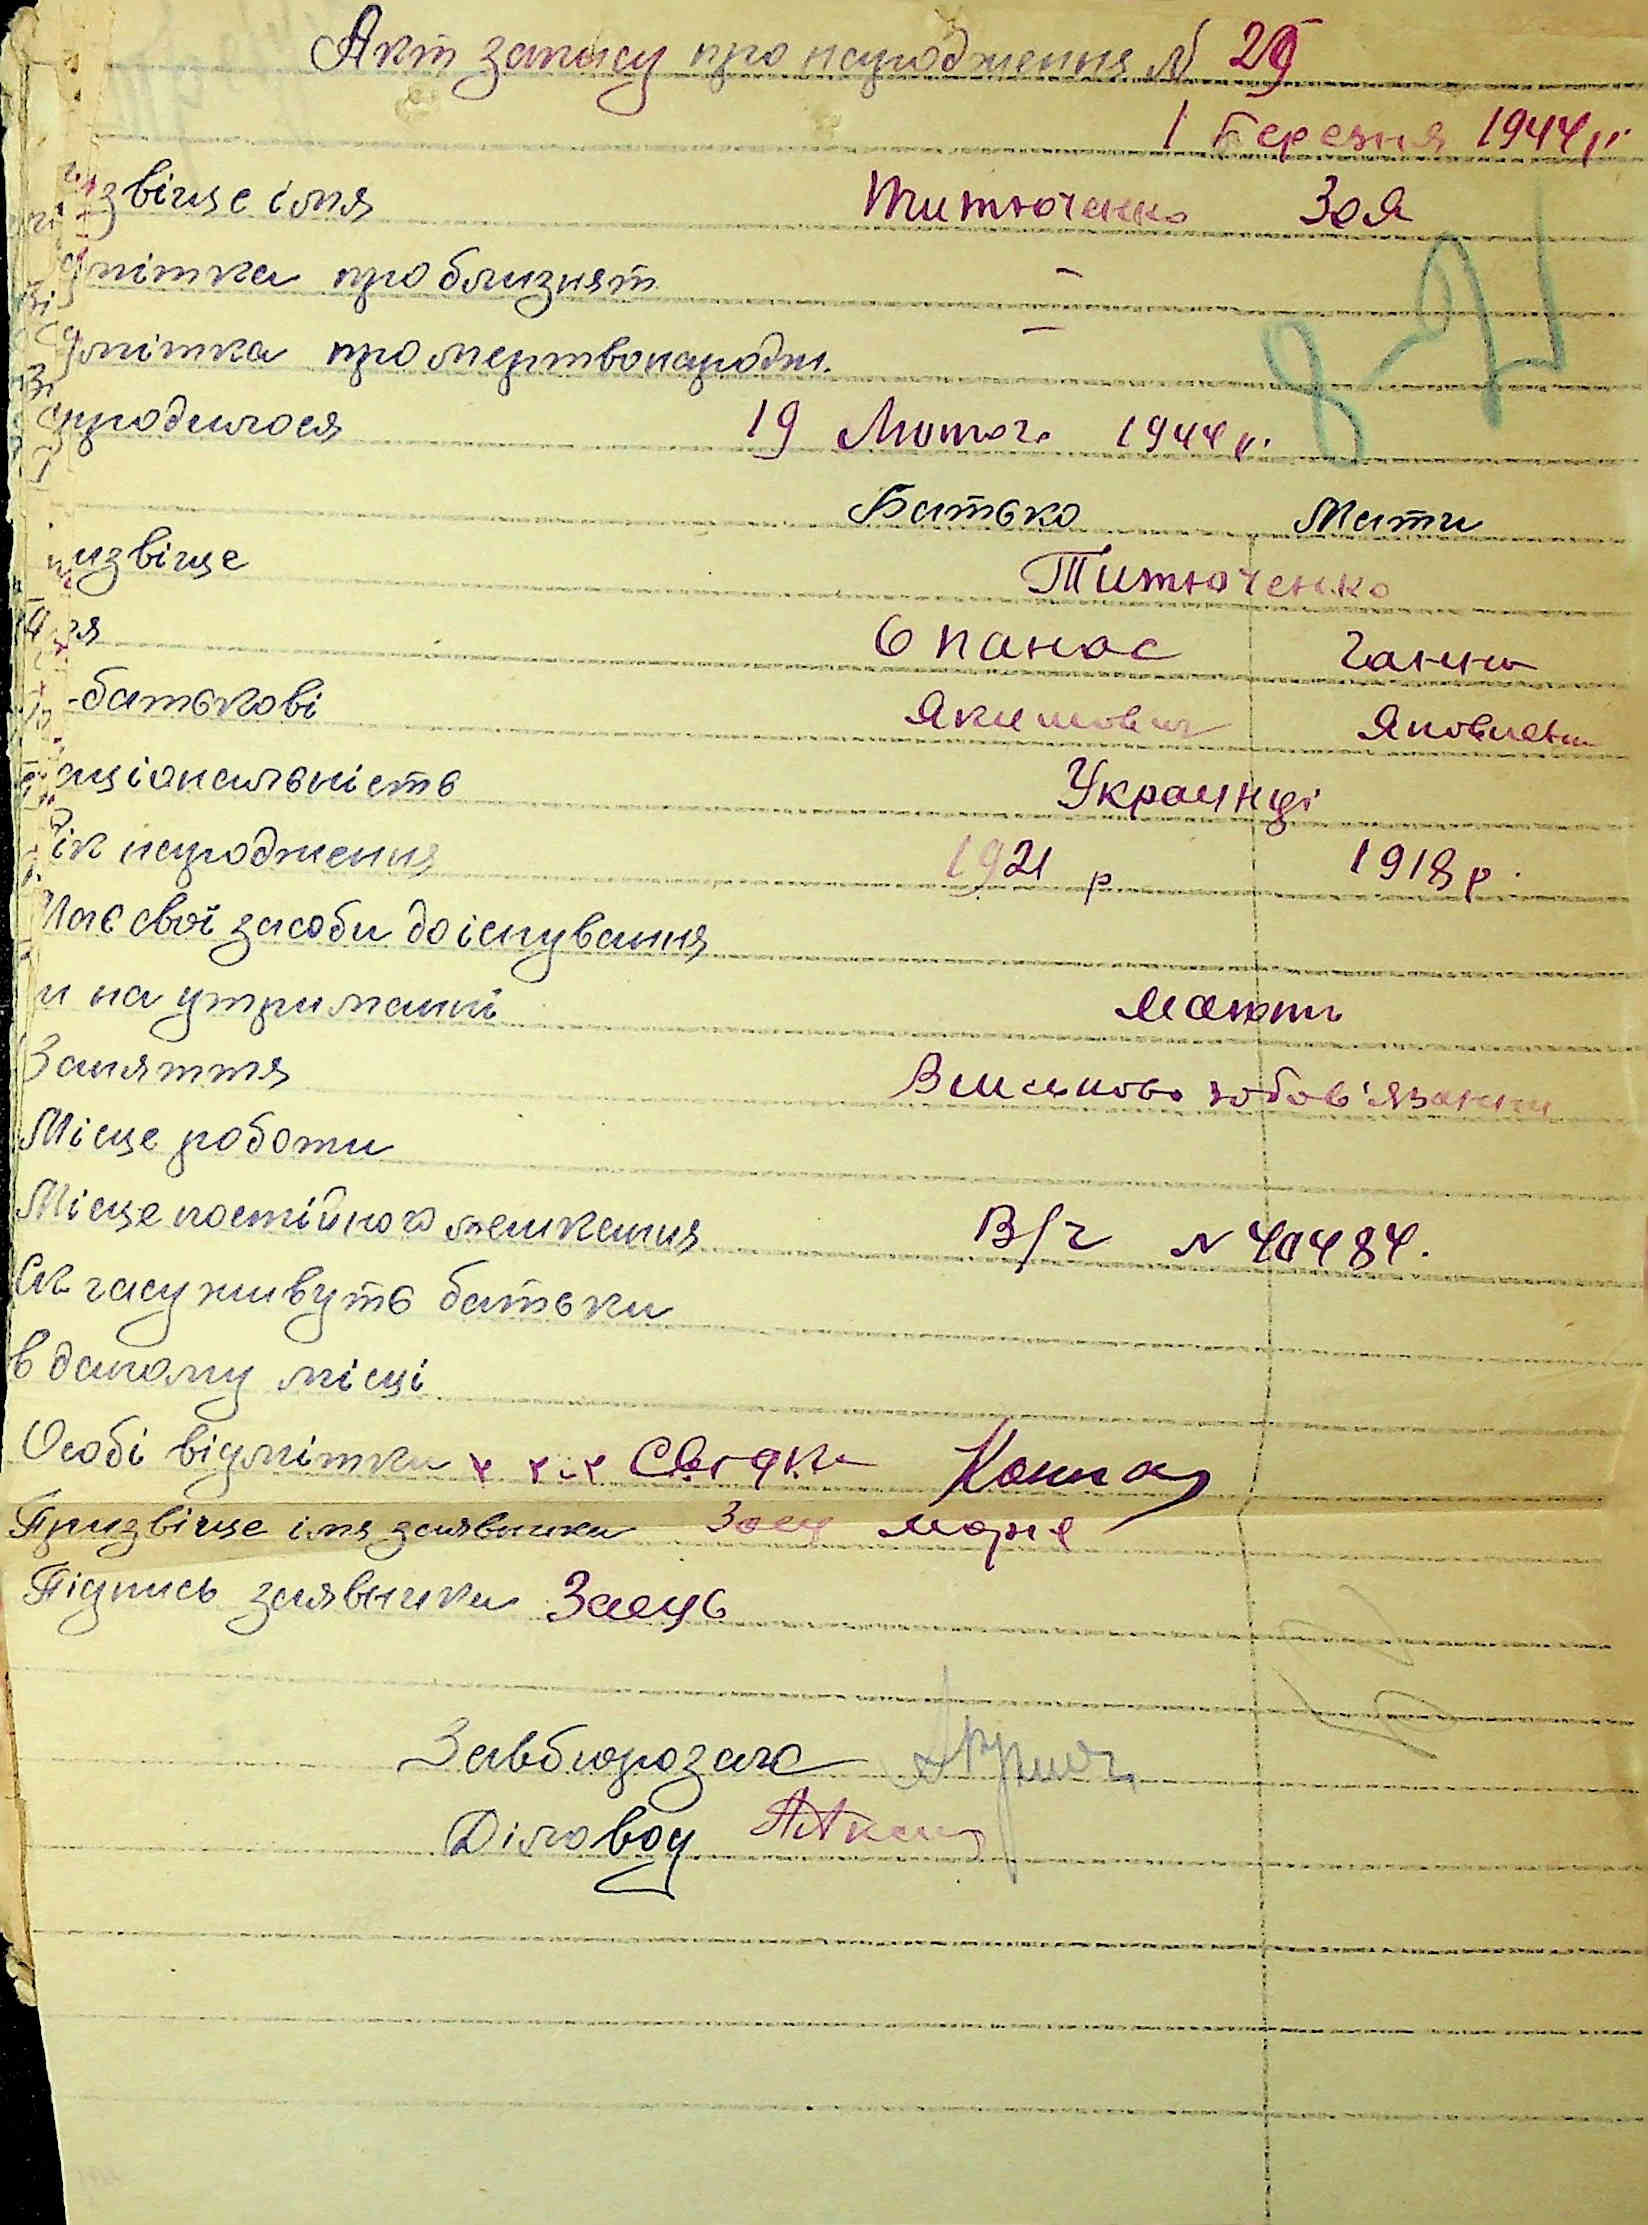 Акт запису про народження № 29
1 Березня 1944 р.
ізвіще і мя Титюченко Зоя
дмітка про близнят -
дмітка про мертвонародж. -
ародилося 19 Лютого 1944 р.
Батько Мати
извіще Титюченко
мя Опанас Ганна
-батькові Якимович Яковлевн
аціональність Украинці
Рік народження 1921 р 1918 р.
Має свої засоби до існування
и на утриманні мають
Заняття Військово зобов'язанни
Місце роботи
Місце постійного мешкання В/ч № 40484.
Ск часу живуть батьки
в даному місці
Особі відмітки Свідки
Призвіще і мя заявника Заец Марие
Підпись заявника Заець
Завбюрозагс
Діловод